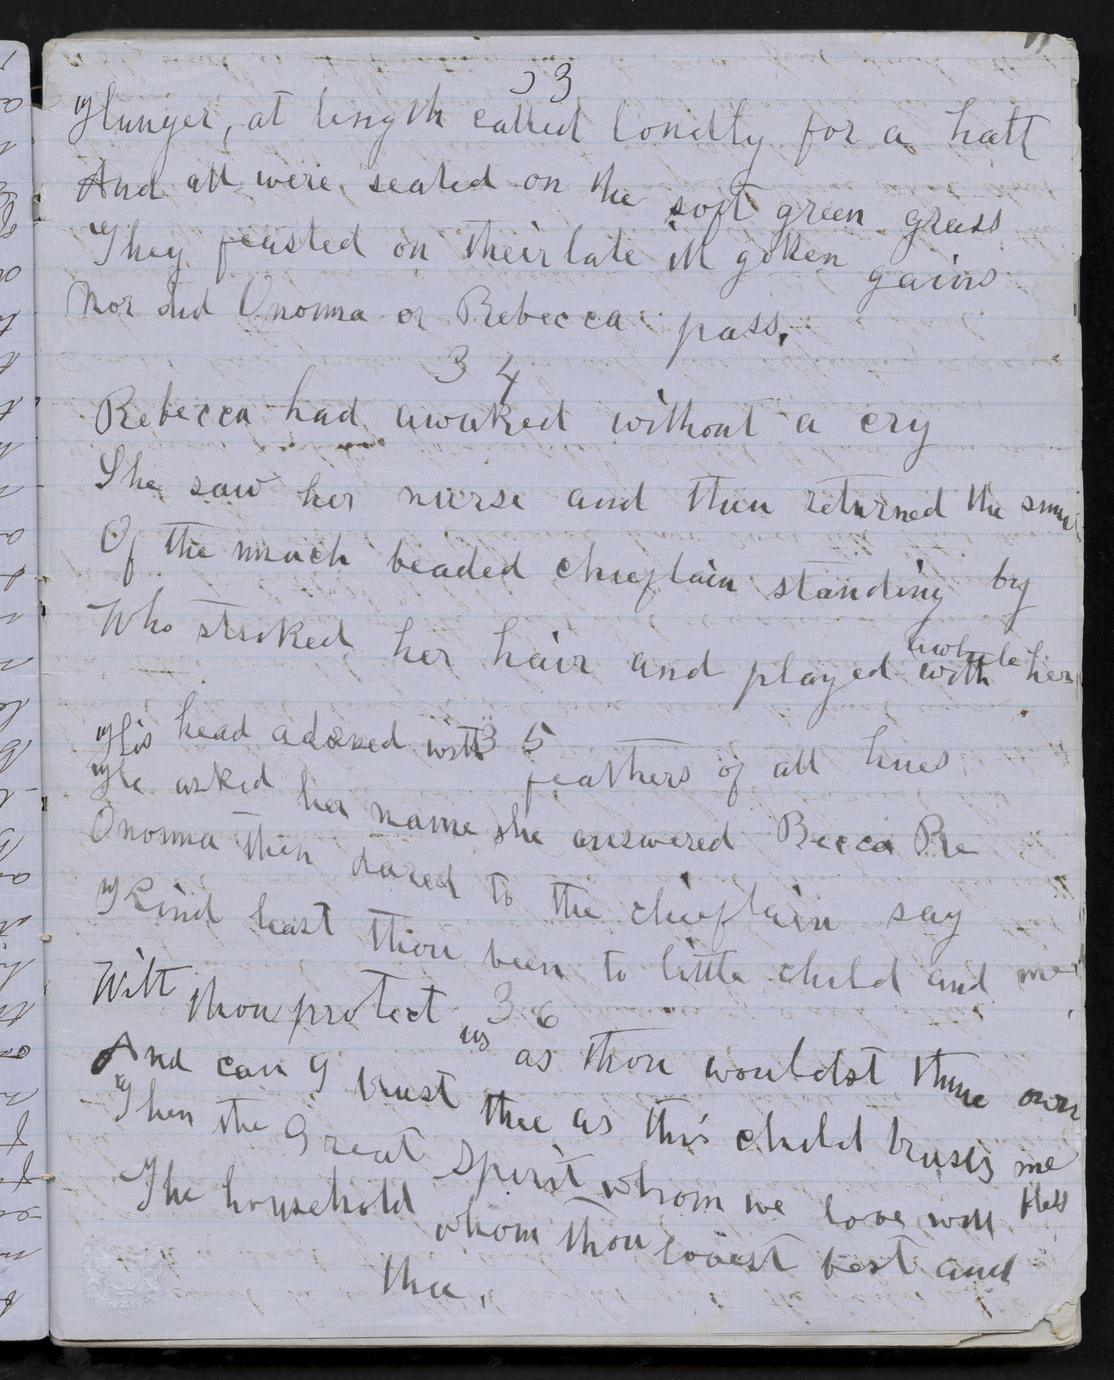 33
Hunger, at length called loudly for a halt
And all were seated on the soft green grass
They feasted on their late ill gotten gains
Nor did Onoma or Rebecca pass,
34
Rebecca had awaked without a cry
She saw her nurse and then returned the
Of the much beaded chieftain standing by
Who stroked her hair and played with awhile her
35
His head adorned with feathers of all hues
He asked her name she answered Becca Re
Onoma then dared to the chieftain say
Kind hast thou been to little child and me
36
Wilt thou protect us as thou wouldst thine own
And can I trust thee as this child trusts me
Then the Great Spirit whom we love will bless
The household whom thou lovest best and
thee,